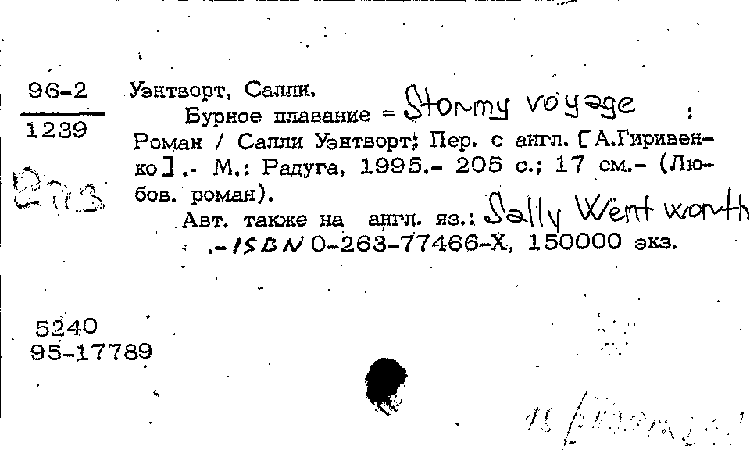 96-2
1239
Уэнтворт, Салли.
Бурное плавание = Stormy voyage :
Роман / Салли Уэнтворт; Пер. с англ. [А.Гиривен-
ко].- М.: Радуга, 1995.- 205 с.; 17 см.- (Лю-
бов. роман).
Авт. также на англ. яз.: Sally Wentworth
.-ISBN 0-263-77466-X, 150000 экз.
5240
95-17789